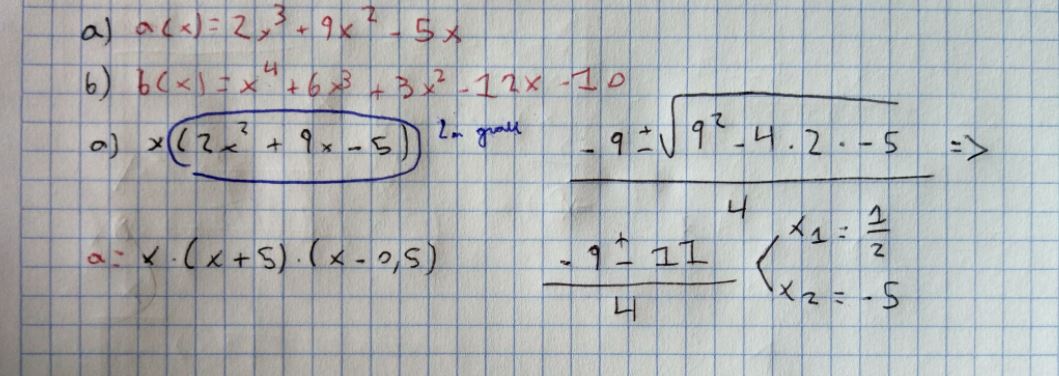 a) a(x) = 2x³ + 9x² - 5x
b) b(x) = x⁴ + 6x³ + 3x² - 12x - 10
a) x(2x² + 9x - 5) 2n grau
-9 ± √(9² - 4 · 2 · -5) / 4 =>
a = x · (x + 5) · (x - 0,5)
-9 ± 11 / 4 < x1 = 1/2
x2 = -5